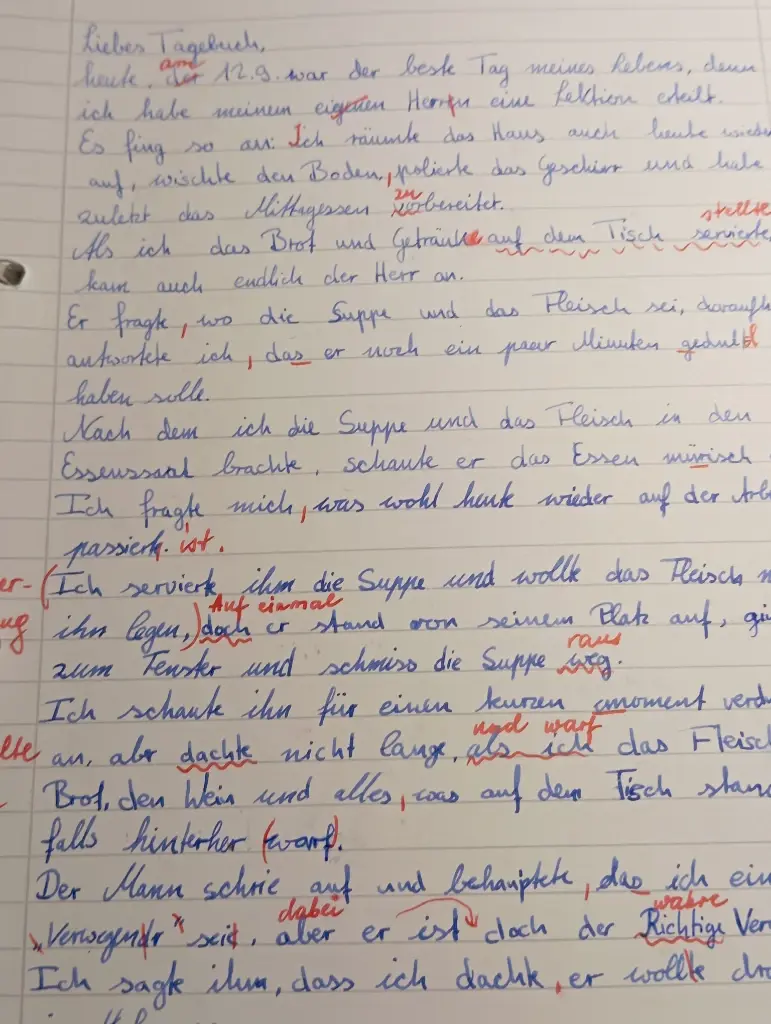 Liebes Tagebuch,
am
heute, der 12.9. war der beste Tag meines Lebens, denn
ich habe meinem eigenen Herrn eine Lektion erteilt.
Es fing so an: Ich räumte das Haus auch heute wieder
auf, wischte den Boden, polierte das Geschirr und habe
zu
zuletzt das Mittagessen vorbereitet.
stellte
Als ich das Brot und Getränke auf dem Tisch servierte,
kam auch endlich der Herr an.
Er fragte, wo die Suppe und das Fleisch sei, darauf
antwortete ich, das er noch ein paar Minuten geduld
haben solle.
Nach dem ich die Suppe und das Fleisch in den
Essenssaal brachte, schaute er das Essen mürisch
Ich fragte mich, was wohl heute wieder auf der Arbe
passiert ist.
er- (Ich servierte ihm die Suppe und wollte das Fleisch
Auf einmal
ug ihn legen,) doch er stand von seinem Platz auf, gi
raus
zum Fenster und schmiss die Suppe weg.
Ich schaute ihn für einen kurzen moment verd
und warf
lte an, aber dachte nicht lange, als ich das Fleisch
Brot, den Wein und alles, was auf dem Tisch stan
falls hinterher (warf).
Der Mann schrie auf und behauptete, das ich ein
dabei wahre
seit, aber er ist doch der Richtige Ver
Ich sagte ihm, dass ich dachte, er wollte